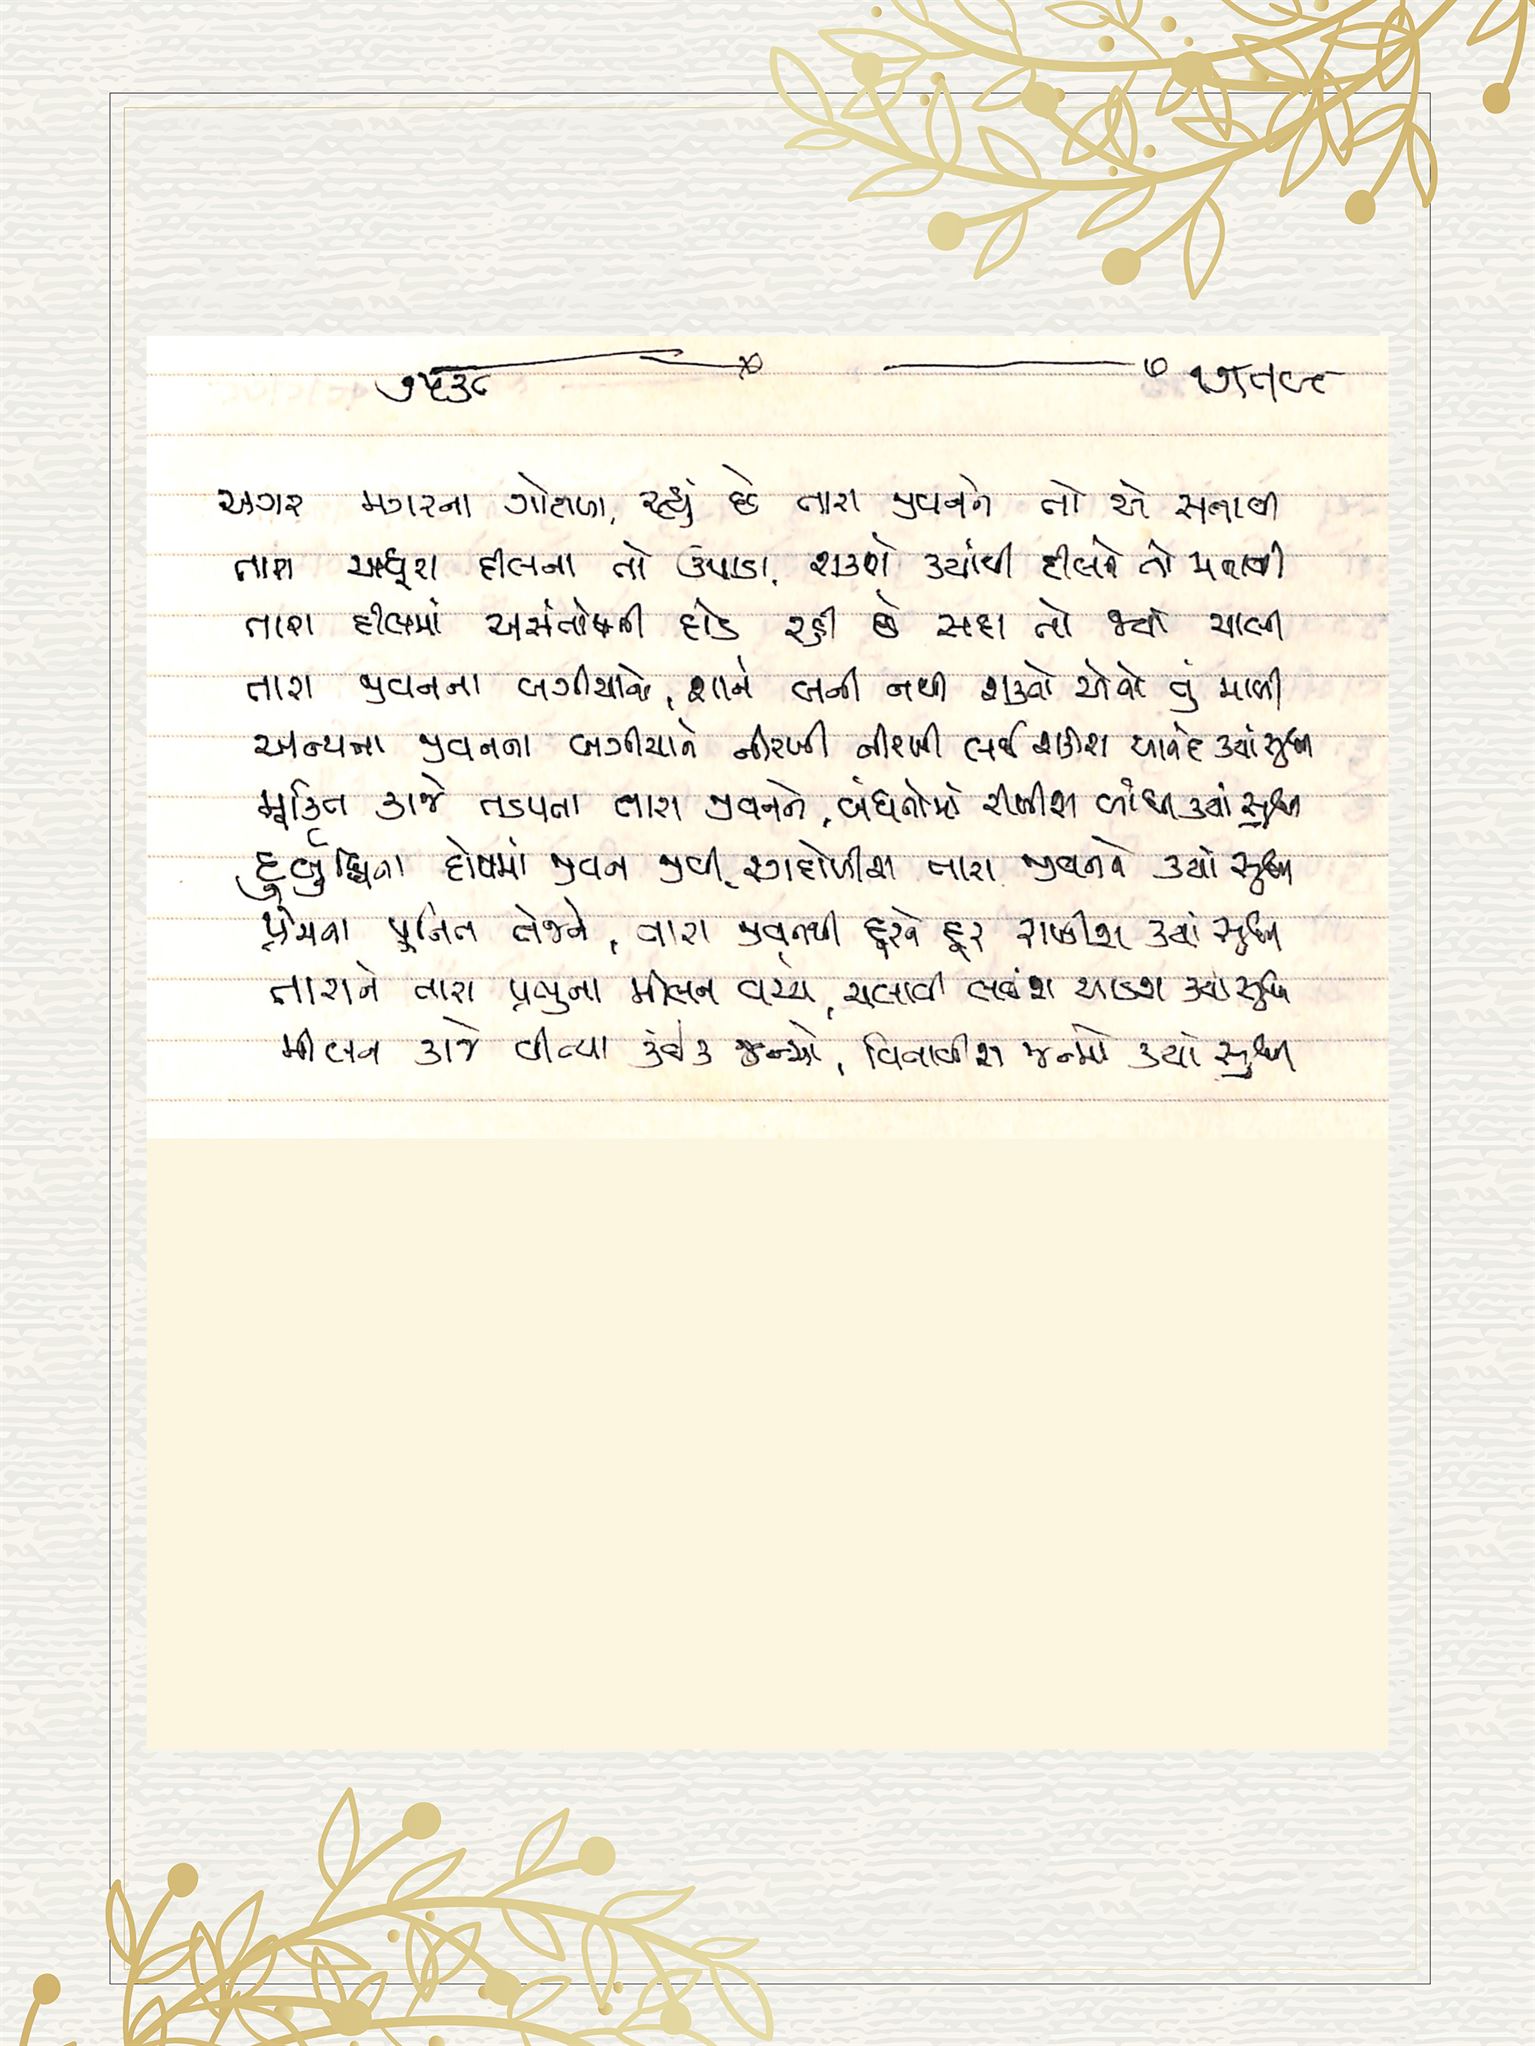 ૭૫૩૮
અગર મગરના ગોટાળા, રહ્યું છે તારા જીવનને તો એ સતાવી
તારા અધૂરા દીલના તો ઉપાડા, શકશે ક્યાંથી દીલને તો મનાવી
તારા દીલમાં અસંતોષની હોડ રહી છે સદા તો જ્યાં ચાલી
તારા જીવનના બગીચાને, શાને બની નથી શક્યો એવો તું માળી
અન્યના જીવનના બગીચાને નીરખી નીરખી લઈ શકીશ આનંદ ક્યાં સુધી
મુક્તિ કાજે તડપતા તારા જીવનને, બંધનોમાં રાખીશ બાંધી ક્યાં સુધી
દુર્બુદ્ધિના દોષમાં જીવન જીવી, રગદોળીશ તારા જીવનને ક્યાં સુધી
પ્રેમના પુનિત તેજને, તારા જીવનથી દૂરને દૂર રાખીશ ક્યાં સુધી
તારાને તારા પ્રભુના મીલન વચ્ચે, ચલાવી લઈશ આડશ ક્યાં સુધી
મીલન કાજે વીત્યા કંઈક જન્મો, વિતાવીશ જન્મો ક્યાં સુધી